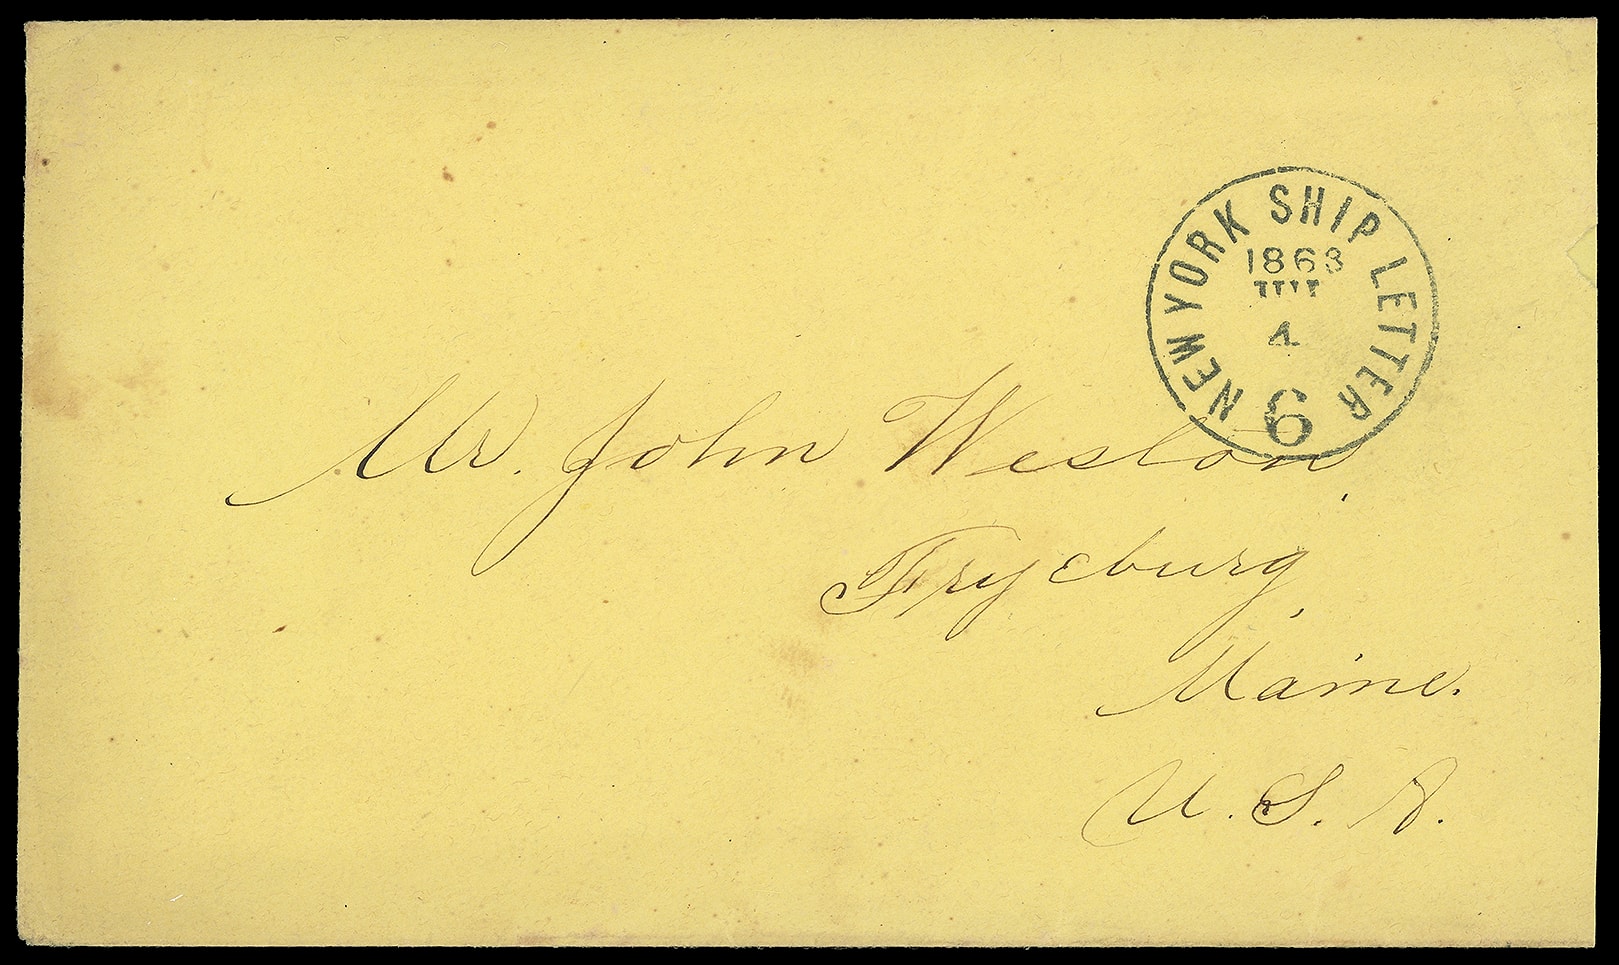 NEW YORK SHIP LETTER
1863
4
6
Mr. John Weston,
Fryeburg,
Maine.
U. S. A.